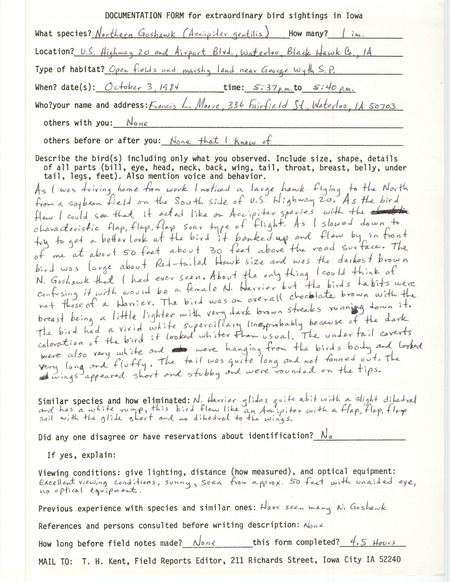 DOCUMENTATION FORM for extraordinary bird sightings in Iowa
What species? Northern Goshawk (Accipiter gentilis) How many? 1 im.
Location? U.S. Highway 20 and Airport Blvd., Waterloo, Black Hawk Co., IA
Type of habitat? Open fields and marshy land near George Wyth S.P.
When? date(s): October 3, 1984 time: 5:37 p.m. to 5:40 p.m.
Who? your name and address: Francis L. Moore, 336 Fairfield St., Waterloo, IA 50703
others with you: None
others before or after you: None that I know of
Describe the bird(s) including only what you observed. Include size, shape, details
of all parts (bill, eye, head, neck, back, wing, tail, throat, breast, belly, under
tail, legs, feet). Also mention voice and behavior.
As I was driving home from work I noticed a large hawk flying to the North
from a soybean field on the South side of U.S. Highway 20. As the bird
flew I could see that it acted like an Accipiter species with the
characteristic flap, flap, flap soar type of flight. As I slowed down to
try to get a better look at the bird it banked up and flew by in front
of me at about 50 feet and about 30 feet above the road surface. The
bird was large about Red-tailed Hawk size and was the darkest brown
N. Goshawk that I had ever seen. About the only thing I could think of
confusing it with would be a female N. Harrier but the bird's habits were
not those of a Harrier. The bird was an overall chocolate brown with the
breast being a little lighter with very dark brown streaks running down it.
The bird had a vivid white supercillary line, probably because of the dark
coloration of the bird it looked whiter than usual. The undertail coverts
were also very white and were hanging from the birds body and looked
very long and fluffy. The tail was quite long and not fanned out. The
wings appeared short and stubby and were rounded on the tips.
Similar species and how eliminated: N. Harrier glides quite a bit with a slight dihedral
and has a white rump, this bird flew like an Accipiter with a flap, flap, flap
sail with the glide short and no dihedral to the wings.
Did any one disagree or have reservations about identification? No
If yes, explain:
Viewing conditions: give lighting, distance (how measured), and optical equipment:
Excellent viewing conditions, sunny, seen from approx. 50 feet with unaided eye,
no optical equipment.
Previous experience with species and similar ones: Have seen many N. Goshawk
References and persons consulted before writing description: None
How long before field notes made? None this form completed? 4.5 Hours
MAIL TO: T. H. Kent, Field Reports Editor, 211 Richards Street, Iowa City IA 52240